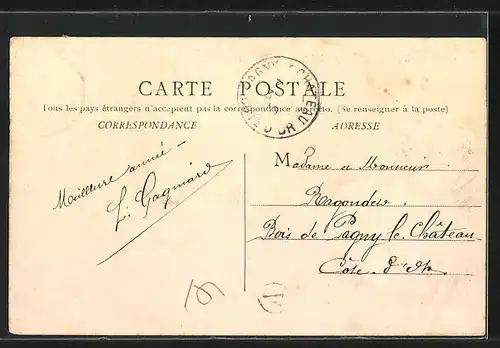 PAGNY-LE-CHÂTEAU
CÔTE D'OR
CARTE POSTALE
Tous les pays étrangers n'acceptent pas la correspondance au recto. (Se renseigner à la poste)
CORRESPONDANCE
ADRESSE
Meilleure année –
L. Gagniard
Madame et Monsieur
Ragondew.
Bois de Pagny le Château
Côte d'Or
(A)